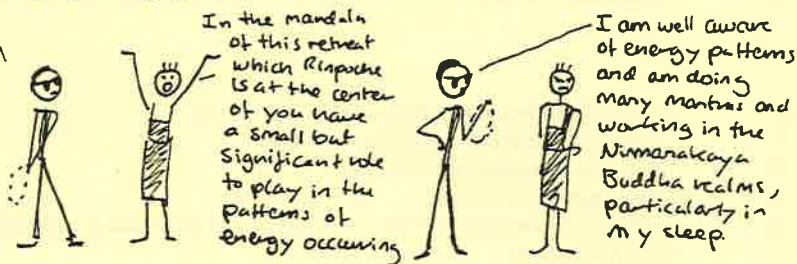 In the mandala
of this retreat
which Rinpoche
is at the center
of you have
a small but
significant role
to play in the
patterns of
energy occurring
I am well aware
of energy patterns
and am doing
many mantras and
working in the
Nirmanakaya
Buddha realms,
particularly in
my sleep.